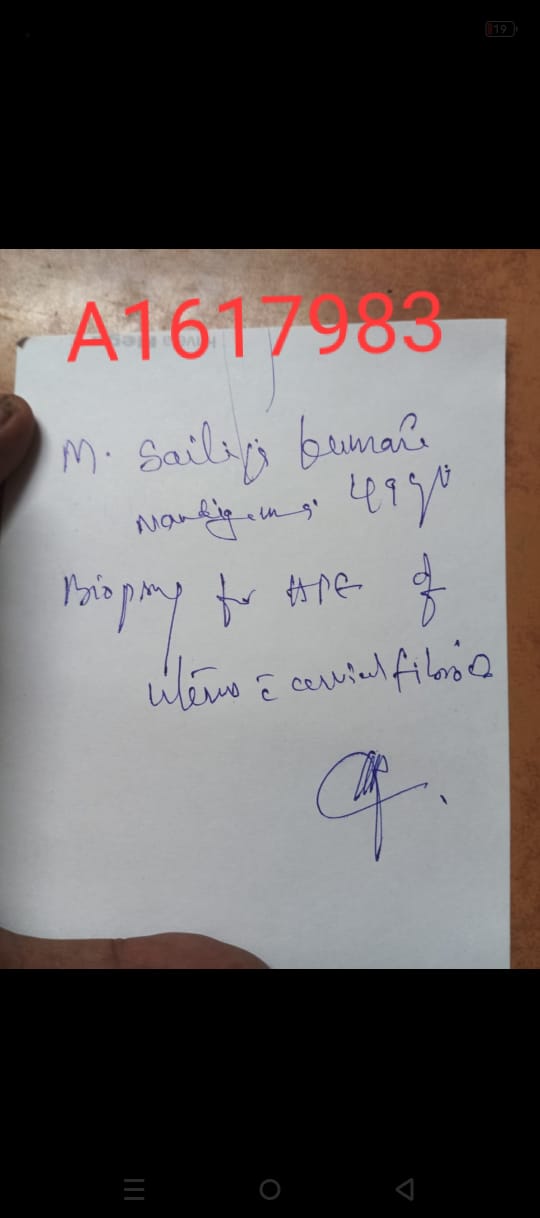 19
A1617983
M. Sailaja Kumari
Nandigama 49 yrs
Biopsy for HPE of
uterus c̄ cervical fibroid